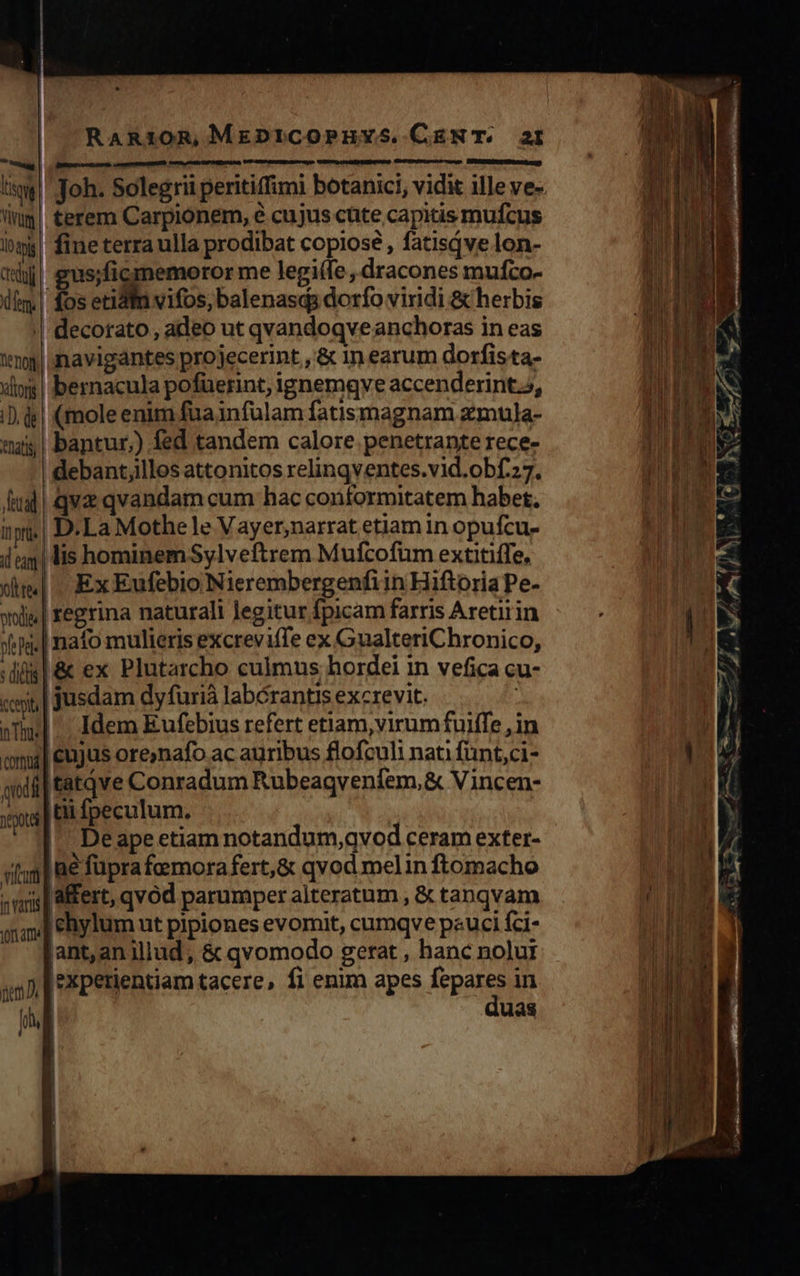 RARIOR. MEDICOPHYS. CENT. 21
Joh. Solegrii peritiſſimi botanici, vidit ille ve-
terem Carpionem, è cujus cute capitis muſcus
ſine terra ulla prodibat copiosè, ſatisq́ve lon-
gus; ſic memoror me legiſſe, dracones muſco-
ſos etiam viſos, balenasq; dorſo viridi & herbis
decorato, adeo ut qvandoqve anchoras in eas
navigantes projecerint, & in earum dorſis ta-
bernacula poſuerint, ignemqve accenderint,
(mole enim ſua inſulam ſatis magnam æmula-
bantur,) ſed tandem calore penetrante rece-
debant, illos attonitos relinqventes. vid. obſ. 27.
qvæ qvandam cum hac conformitatem habet.
D. La Mothe le Vayer, narrat etiam in opuſcu-
lis hominem Sylveſtrem Muſcoſum extitiſſe.
Ex Euſebio Nierembergenſi in Hiſtoria Pe-
regrina naturali legitur ſpicam farris Aretii in
naſo mulieris excreviſſe ex Gualteri Chronico,
& ex Plutarcho culmus hordei in veſica cu-
jusdam dyſuriâ laborantis excrevit.
Idem Euſebius refert etiam, virum fuiſſe, in
cujus ore, naſo ac auribus floſculi nati ſunt, ci-
tatq́ve Conradum Rubeaqvenſem, & Vincen-
tii ſpeculum.
De ape etiam notandum, qvod ceram exter-
nè ſupra fœmora fert, & qvod mel in ſtomacho
affert, qvòd parumper alteratum, & tanqvam
chylum ut pipiones evomit, cumqve pauci ſci-
ant, an illud, & qvomodo gerat, hanc nolui
experientiam tacere, ſi enim apes ſepares in
duas